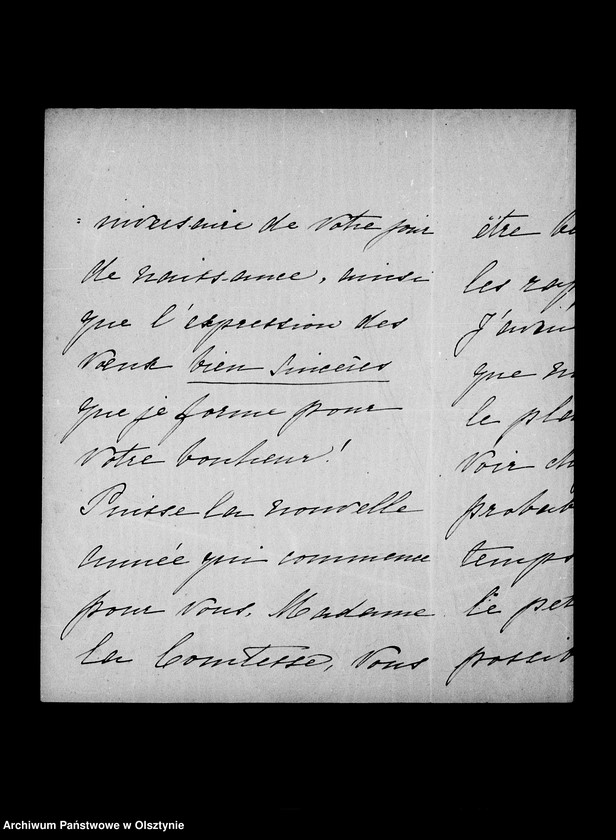 niversaire de votre jour
de naissance, ainsi
que l'expression des
vœux bien sincères
que je forme pour
votre bonheur!
Puisse la nouvelle
année qui commence
pour vous, Madame
la Comtesse, vous
être be
les rap
J'avan
que
le pla
voir
probab
temps
le pet
possib
Archiwum Państwowe w Olsztynie